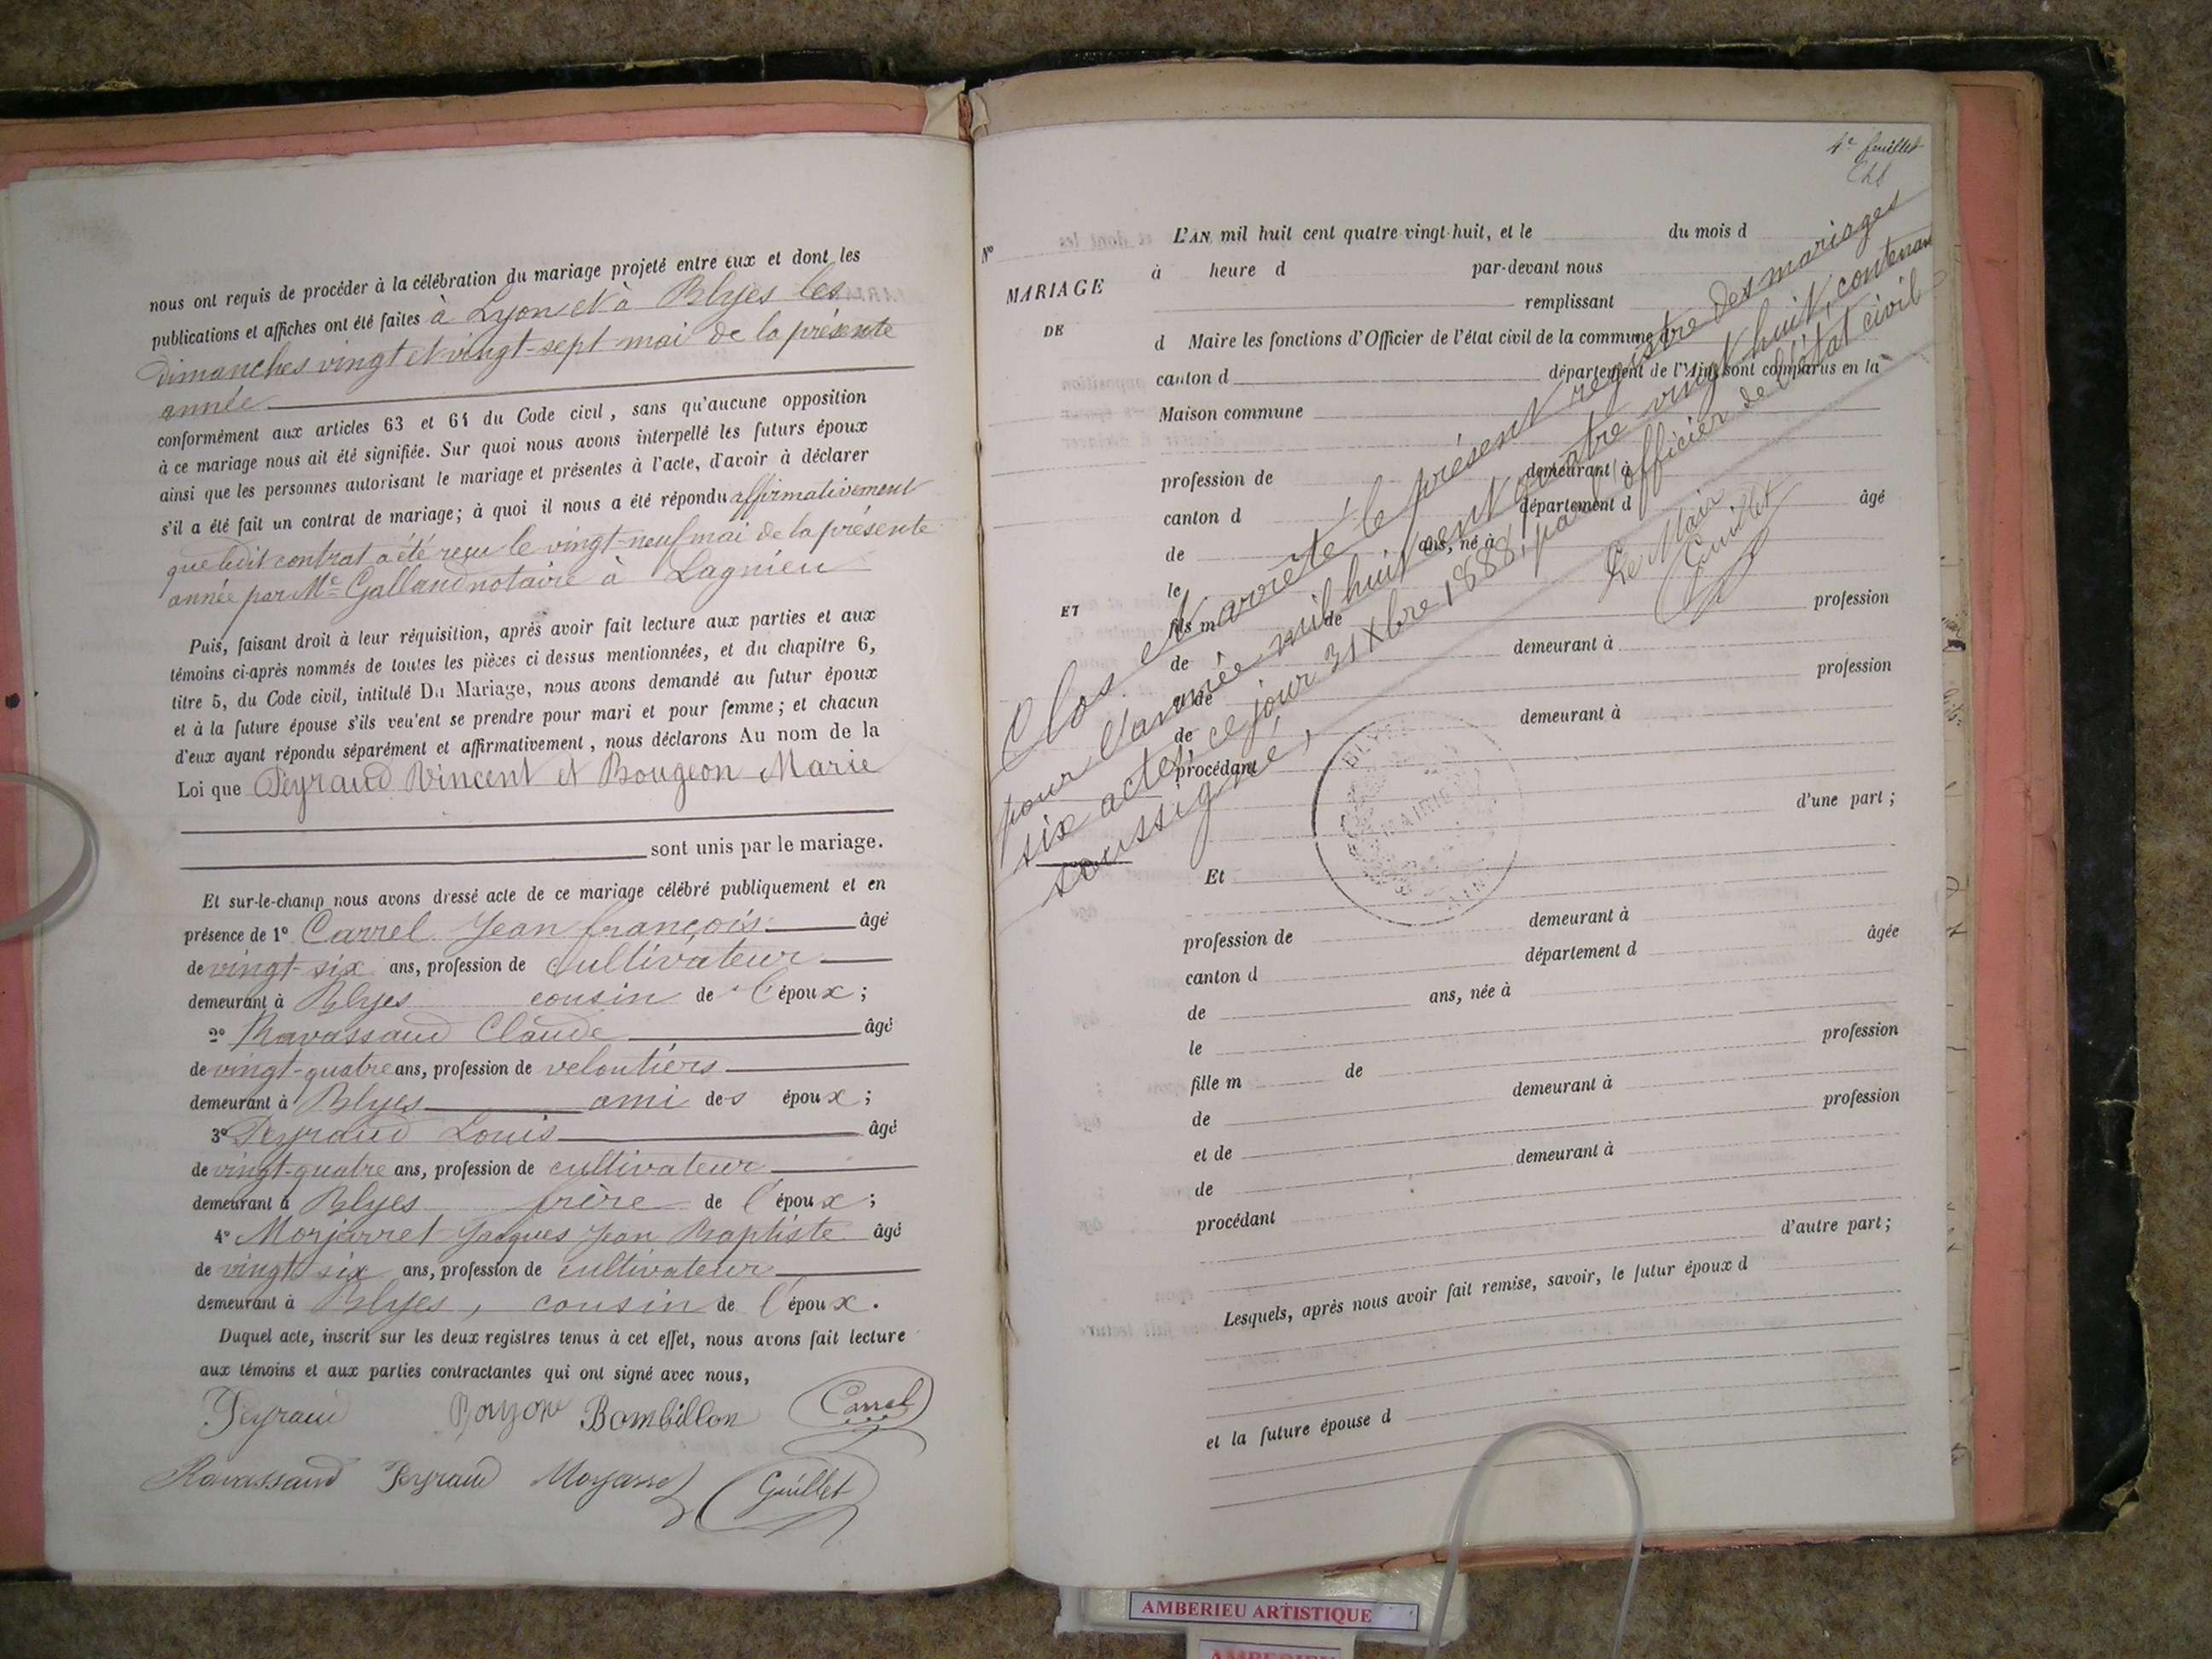 nous ont requis de procéder à la célébration du mariage projeté entre eux et dont les
publications et affiches ont été faites à Lyon et à Blyes les
dimanches vingt et vingt-sept mai de la présente
année
conformément aux articles 63 et 64 du Code civil, sans qu'aucune opposition
à ce mariage nous ait été signifiée. Sur quoi nous avons interpellé les futurs époux
ainsi que les personnes autorisant le mariage et présentes à l'acte, d'avoir à déclarer
s'il a été fait un contrat de mariage; à quoi il nous a été répondu affirmativement
que ledit contrat a été reçu le vingt-neuf mai de la présente
année par Me Galland notaire à Lagnieu
Puis, faisant droit à leur réquisition, après avoir fait lecture aux parties et aux
témoins ci-après nommés de toutes les pièces ci dessus mentionnées, et du chapitre 6,
titre 5, du Code civil, intitulé Du Mariage, nous avons demandé au futur époux
et à la future épouse s'ils veu'ent se prendre pour mari et pour femme; et chacun
d'eux ayant répondu séparément et affirmativement, nous déclarons Au nom de la
Loi que Peyraud Vincent et Bougeon Marie
sont unis par le mariage.
Et sur-le-champ nous avons dressé acte de ce mariage célébré publiquement et en
présence de 1° Carrel Jean françois âgé
de vingt-six ans, profession de cultivateur
demeurant à Blyes cousin de l'époux;
2° Ravassaud Claude âgé
de vingt-quatre ans, profession de veloutiers
demeurant à Blyes ami des époux;
3° Peyraud Louis âgé
de vingt-quatre ans, profession de cultivateur
demeurant à Blyes frère de l'époux;
4° Morjarret Jacques Jean Baptiste âgé
de vingt six ans, profession de cultivateur
demeurant à Blyes, cousin de l'époux.
Duquel acte, inscrit sur les deux registres tenus à cet effet, nous avons fait lecture
aux témoins et aux parties contractantes qui ont signé avec nous,
Peyraud Bombillon Carrel
Ravassaud Peyraud Guillet
4e feuillet
N°
MARIAGE
DE
ET
L'AN mil huit cent quatre-vingt-huit, et le du mois d
à heure d par-devant nous
remplissant
d Maire les fonctions d'Officier de l'état civil de la commune d
canton d département de l'Ain, sont comparus en la
Maison commune
profession de demeurant à
canton d département d âgé
de ans, né à
le
fils m de profession
de demeurant à
et de profession
de demeurant à
procédant
d'une part;
Et
profession de demeurant à
canton d département d âgée
de ans, née à
le
fille m de profession
de demeurant à
et de profession
de demeurant à
procédant
d'autre part;
Lesquels, après nous avoir fait remise, savoir, le futur époux d
et la future épouse d
Clos et arrêté le présent registre des mariages
pour l'année mil huit cent quatre vingt huit, contenant
six actes, ce jour 31 Xbre 1888, par l'officier de l'état civil
soussigné,
Le Maire
Guillet
BLYES
MAIRIE
AIN
AMBERIEU ARTISTIQUE
AMBERIEU